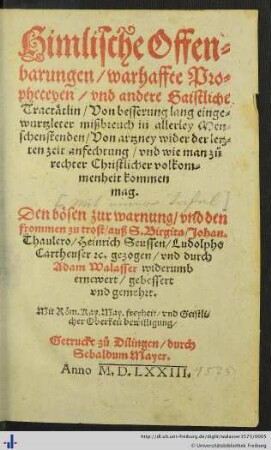 Himlische Offen-
barungen/ warhaffte Pro-
pheceyen/ vnd andere Gaistliche
Tractätlin/ Von besserung lang einge-
wurtzleter mißbreuch in allerley Men-
schenstenden/ Von artzney wider der letz-
ten zeit anfechtung/ vnd wie man zů
rechter Christlicher volkom-
menheit kommen
mag.
Den bösen zur warnung/ vnd den
frommen zu trost/ auß S. Birgita/ Johan.
Thaulero/ Heinrich Seussen/ Ludolpho
Cartheuser ꝛc. gezogen/ vnd durch
Adam Walasser widerumb
ernewert/ gebessert
vnd gemehrt.
Mit Röm. Kay. May. freyheit/ vnd Geistli-
cher Oberkeit bewilligung/
Getruckt zů Dilingen/ durch
Sebaldum Mayer.
Anno M. D. LXXIII. 1575
http://dl.ub.uni-freiburg.de/diglit/walasser1573/0005
© Universitätsbibliothek Freiburg